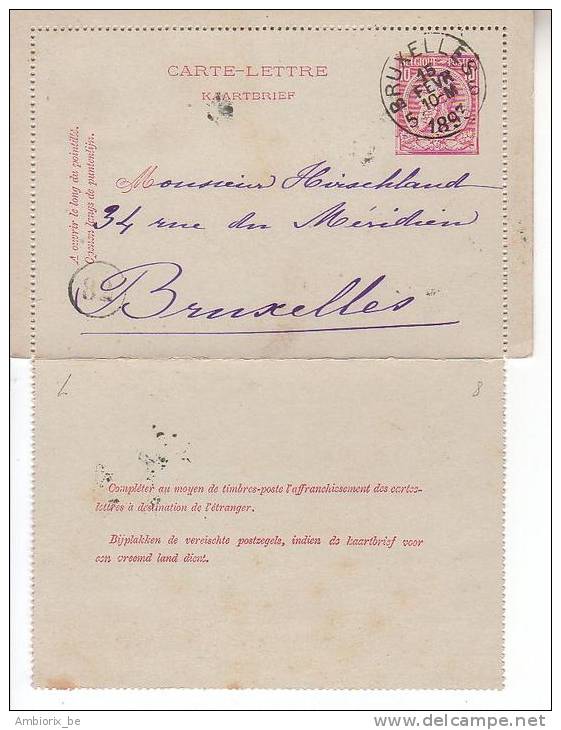 CARTE-LETTRE
KAARTBRIEF
BELGIQUE
BRUXELLES
15
FEVR
10-M
5 1893
A ouvrir le long du pointillé.
Openen langs de puntenlijn.
Monsieur Hirschland
34 rue du Méridien
Bruxelles
7
8
Compléter au moyen de timbres-poste l'affranchissement des cartes-
lettres à destination de l'étranger.
Bijplakken de vereischte postzegels, indien de kaartbrief voor
een vreemd land dient.
Ambiorix_be
www.delcampe.net